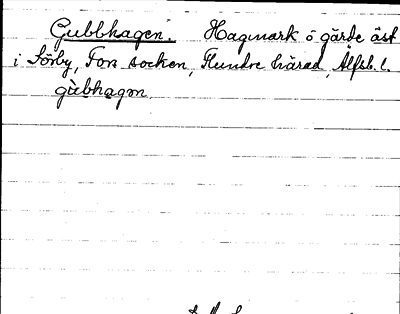 Gubbhagen. Hagmark o gärde äst
i Sörby, Fors socken, Flundre härad, Älfsb. l.
gùbhagen